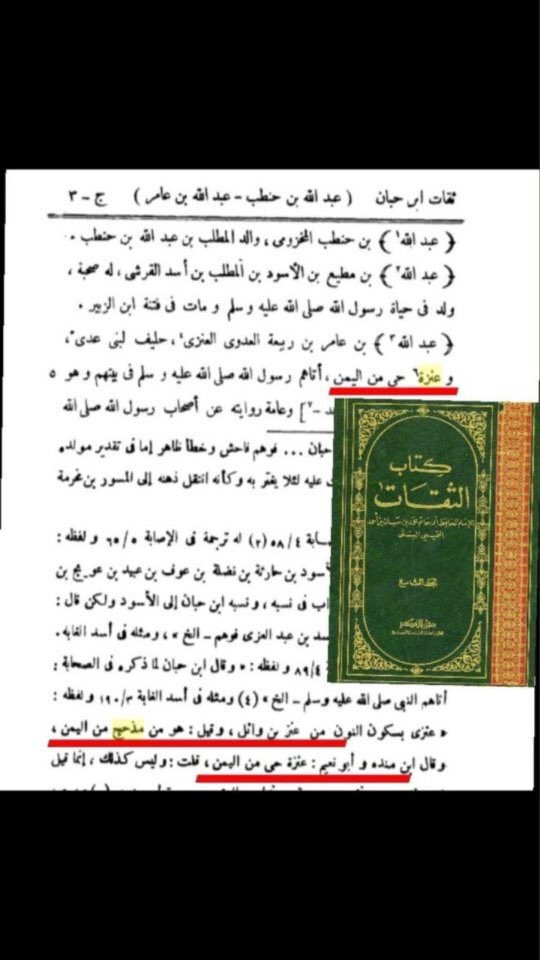 ثقات ابن حبان ( عبد الله بن حنطب - عبد الله بن عامر ) ج - ٣
﴿ عبد الله١ ﴾ بن حنطب المخزومى ، والد المطلب بن عبد الله بن حنطب .
﴿ عبد الله٢ ﴾ بن مطيع بن الأسود بن المطلب بن أسد القرشى ، له صحبة ،
ولد فى حياة رسول الله صلى الله عليه و سلم و مات فى فتنة ابن الزبير .
﴿ عبد الله٣ ﴾ بن عامر بن ربيعة العدوى العنزى ، حليف لبنى عدى ،
و عنزة حى من اليمن ، أتاهم رسول الله صلى الله عليه و سلم فى بيتهم و هو ٥
[ ٢- وعامة روايته عن أصحاب رسول الله صلى الله
حبان ... فوهم فاحش وخطأ ظاهر إما فى تقدير مولده
عليه لئلا يغتر به وكأنه انتقل ذهنه إلى المسور بن مخرمة
٥٨/٤ (٢) له ترجمة فى الإصابة ٦٥/٥ و لفظه :
أسود بن حارثة بن نضلة بن عوف بن عبيد بن عويج بن
فى نسبه ، ونسبه ابن حبان إلى الأسود ولكن قال :
بن عبد العزى فوهم - الخ » ، ومثله فى أسد الغابه .
٨٩/٤ و لفظه : « و قال ابن حبان لما ذكره فى الصحابة :
أتاهم النبي صلى الله عليه وسلم - الخ » (٤) ومثله فى أسد الغابة ١٩٠/٣ ولفظه :
« عنزى بسكون النون من عنز بن وائل ، وقيل : هو من مذحج من اليمن ،
وقال ابن منده و أبو نعيم : عنزة حى من اليمن ، قلت : وليس كذلك ، إنما قيل
كتاب
الثقات
المجلد التاسع